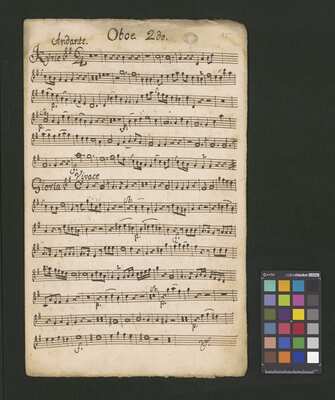 Oboe 2do.
Andante.
Kyrie
p.
f.
p.
Vivace
Gloria
p.
p.
p.
p.
f.